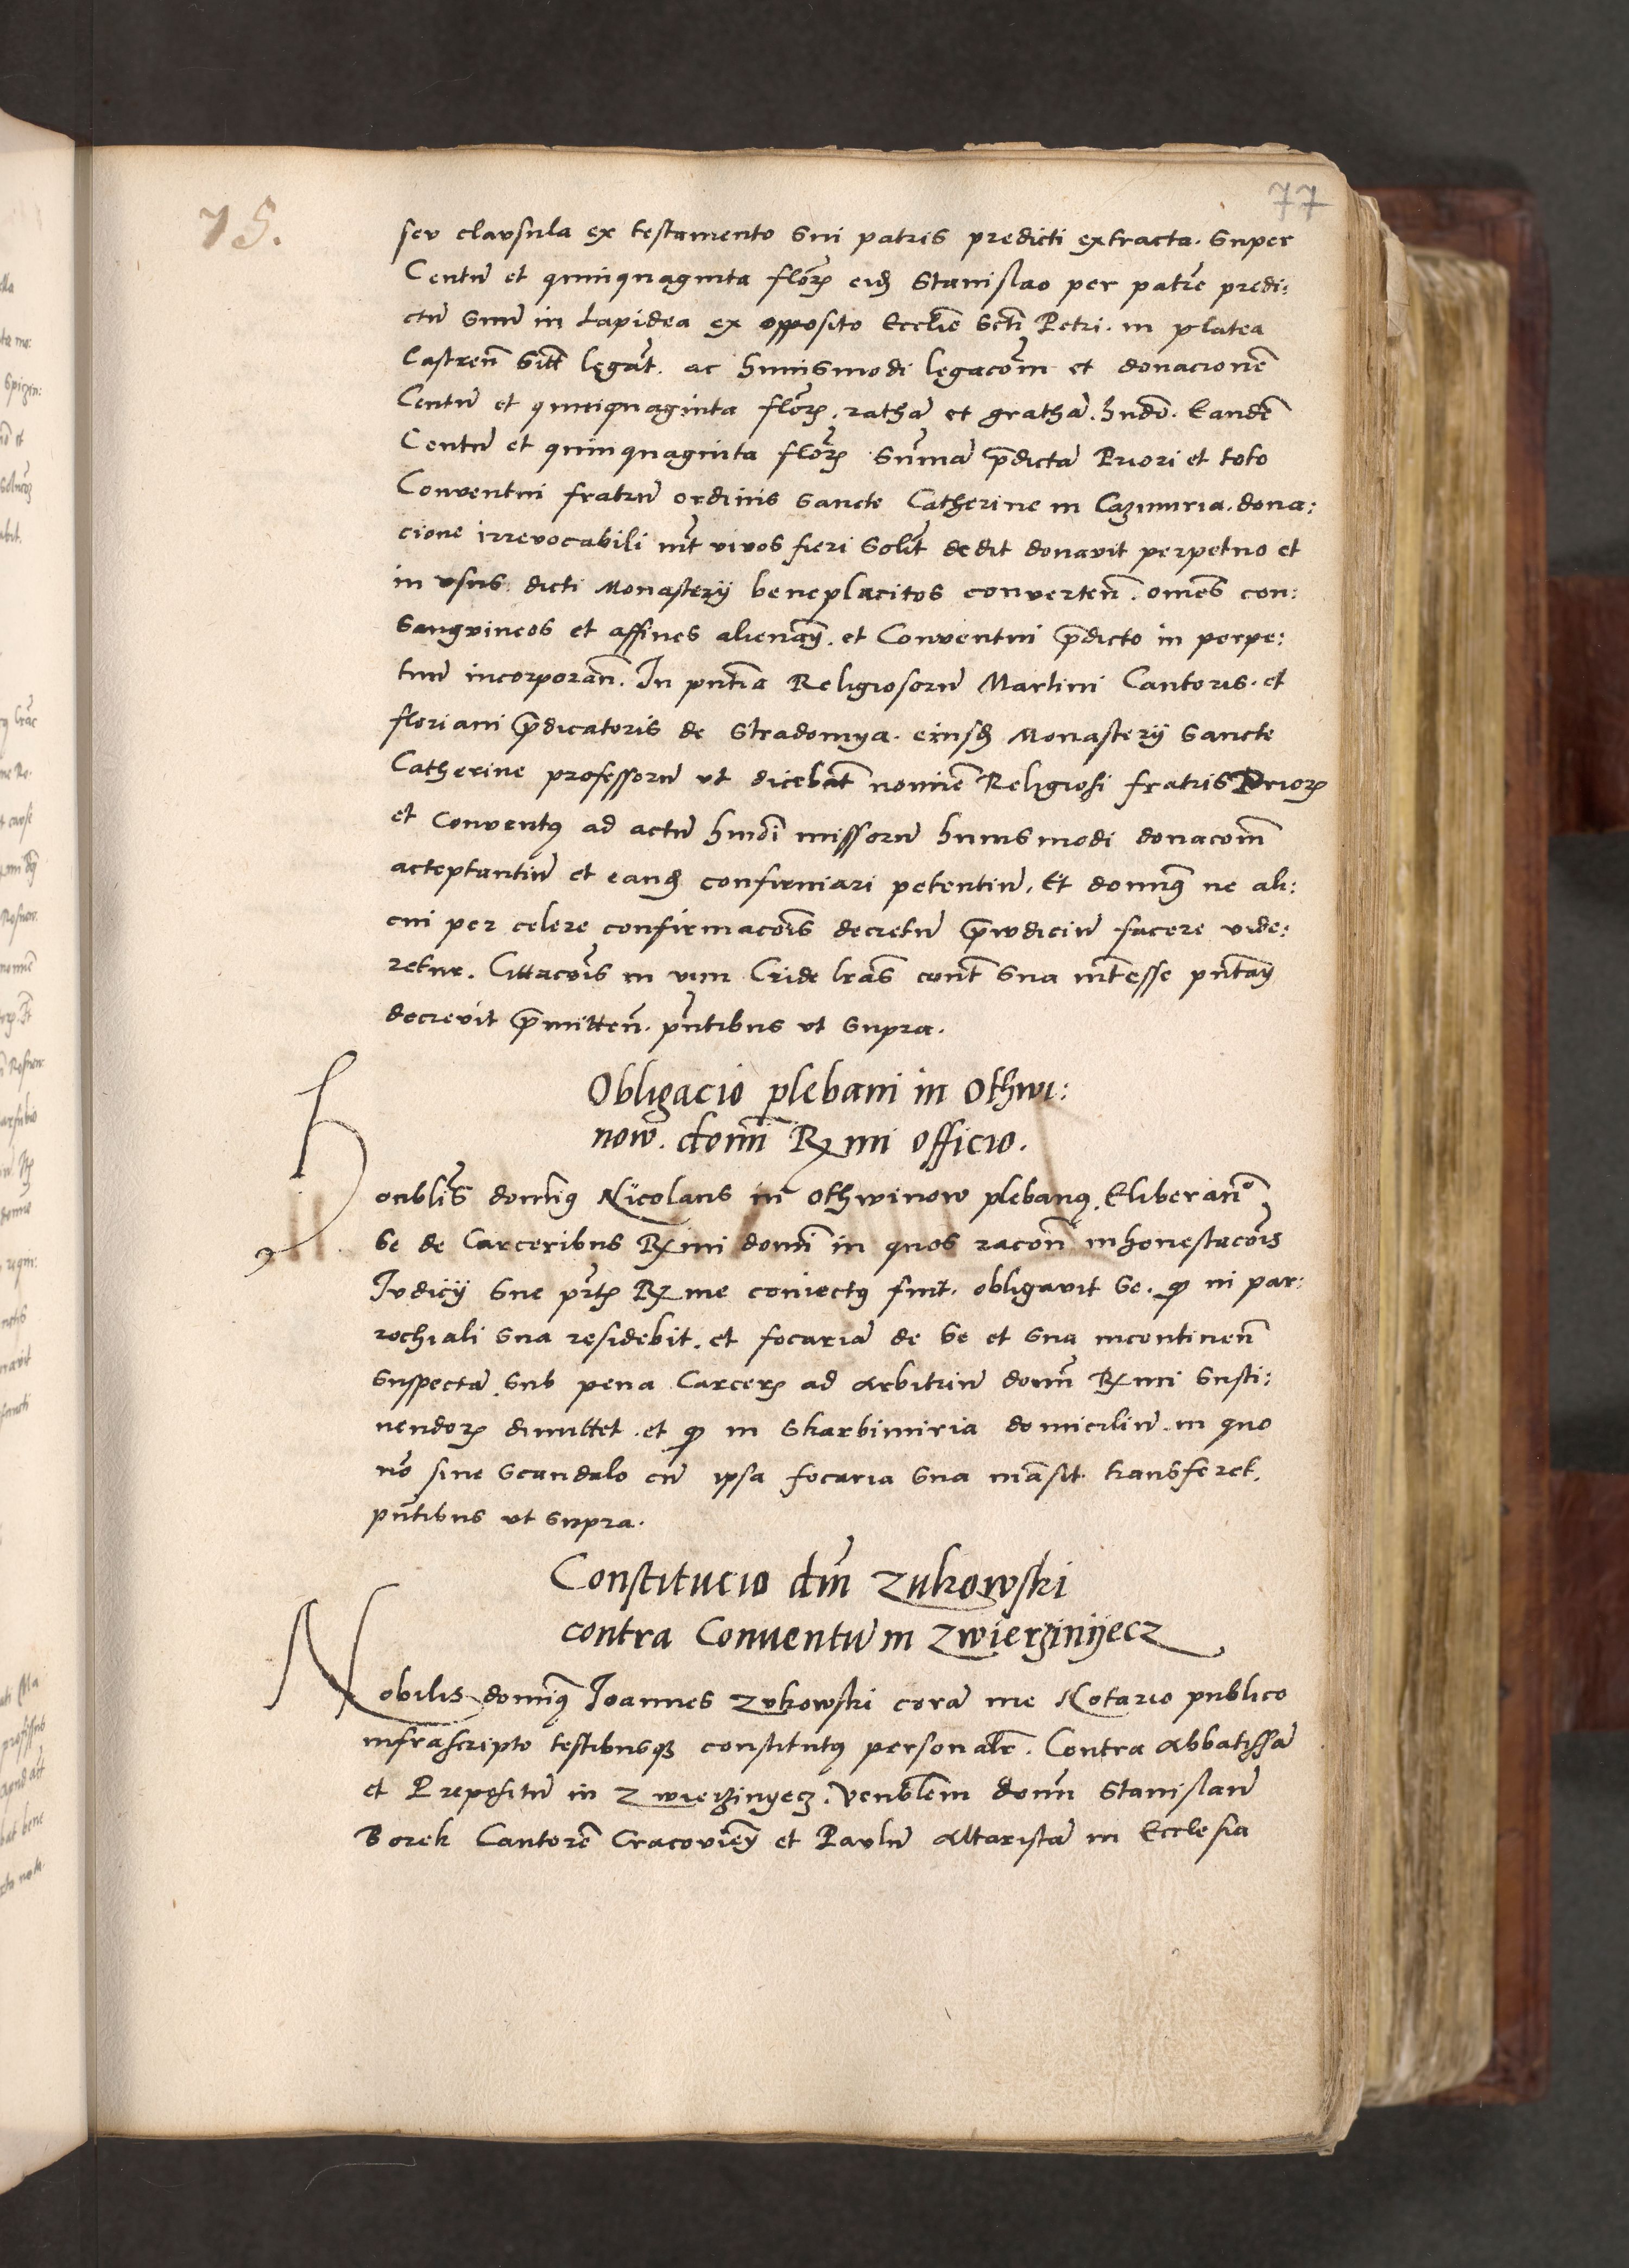 75.
77
seu clausula ex testamento sui patris predicti extracta. super
Centū et quinquaginta florꝫ eidē Stanislao per patrē predi:
ctū suū in Lapidea ex opposito Ecclīe Sctī Petri. in platea
Castreñ sitt̄ legāt. ac huiusmodi legacōm et donacionē
Centū et quinquaginta florꝫ. rathā et grathā. hñdō. Eandē
Centū et quinquaginta florꝫ sūmā p̄dictā Priori et toto
Conventui fratrū ordinis sancte Catherine in Cazimiria. dona:
cione irrevocabili int̄ vivos fieri solit̄ dedit donavit perpetuo et
in usus dicti Monasterij beneplacitos converteñ. omēs con:
sangvineos et affines alienañ. et Conventui p̄dicto in perpe:
tuū incorporañ. In pn̄tia Religiosorū Martini Cantoris. et
floriani p̄dicatoris de Stradomya. eiusdē Monasterij sancte
Catherine professorū ut dicebāt nomīe Religiosi fratris Priorꝫ
et Conventꝯ ad actū hmōi missorū huiusmodi donacōm
acceptantiū et eandē confirmari petentiū. Et domīnꝯ ne ali:
cui per celere confirmacōis decretū p̄iudiciū facere vide:
retur. Cittacōis in vim Cride lrās cont̄ sua int̄esse pn̄tañ
decrevit p̄mitteñ. pn̄tibus ut supra.
Obligacio plebani in Othwi:
now. domī Rꝫmi officio.
Honblīs domīnꝯ Nicolaus in Othwinow plebanꝯ. Eliberānō
se de Carceribus Rꝫmi domī in quos racōn inhonestacōis
Iudicij sue prt̄ꝫ Rꝫme coniectꝯ fuit. obligavit se. ꝙ in par:
rochiali sua residebit. et focariā de se et sua incontineñ
suspectā. sub pena Carcerꝫ ad arbitriū domī Rꝫmi susti:
nendorꝫ dimittet. et ꝙ in Skarbimiria domiciliū. in quo
nō sine scandalo cū ipsa focaria sua mā̄sit transferet.
pn̄tibus ut supra.
Constitucio dm̄ Zukowski
contra Conventum Zwierzinijecz
Nobilis domīnꝯ Joannes Zukowski corā me Notario publico
infrascripto testibusqꝫ constitutꝯ personalr̄. Contra Abbatissā
et Prepositū in Zwierzinyecz. Venblēm domī Stanislaū
Borek Cantorē Cracovieñ et Paulū Altaristā in Ecclesia